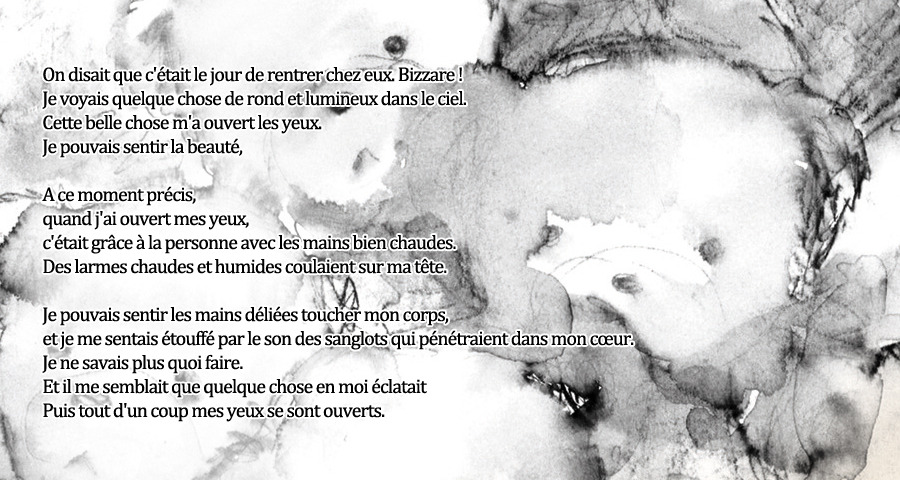 On disait que c'était le jour de rentrer chez eux. Bizzare !
Je voyais quelque chose de rond et lumineux dans le ciel.
Cette belle chose m'a ouvert les yeux.
Je pouvais sentir la beauté,
A ce moment précis,
quand j'ai ouvert mes yeux,
c'était grâce à la personne avec les mains bien chaudes.
Des larmes chaudes et humides coulaient sur ma tête.
Je pouvais sentir les mains déliées toucher mon corps,
et je me sentais étouffé par le son des sanglots qui pénétraient dans mon cœur.
Je ne savais plus quoi faire.
Et il me semblait que quelque chose en moi éclatait
Puis tout d'un coup mes yeux se sont ouverts.